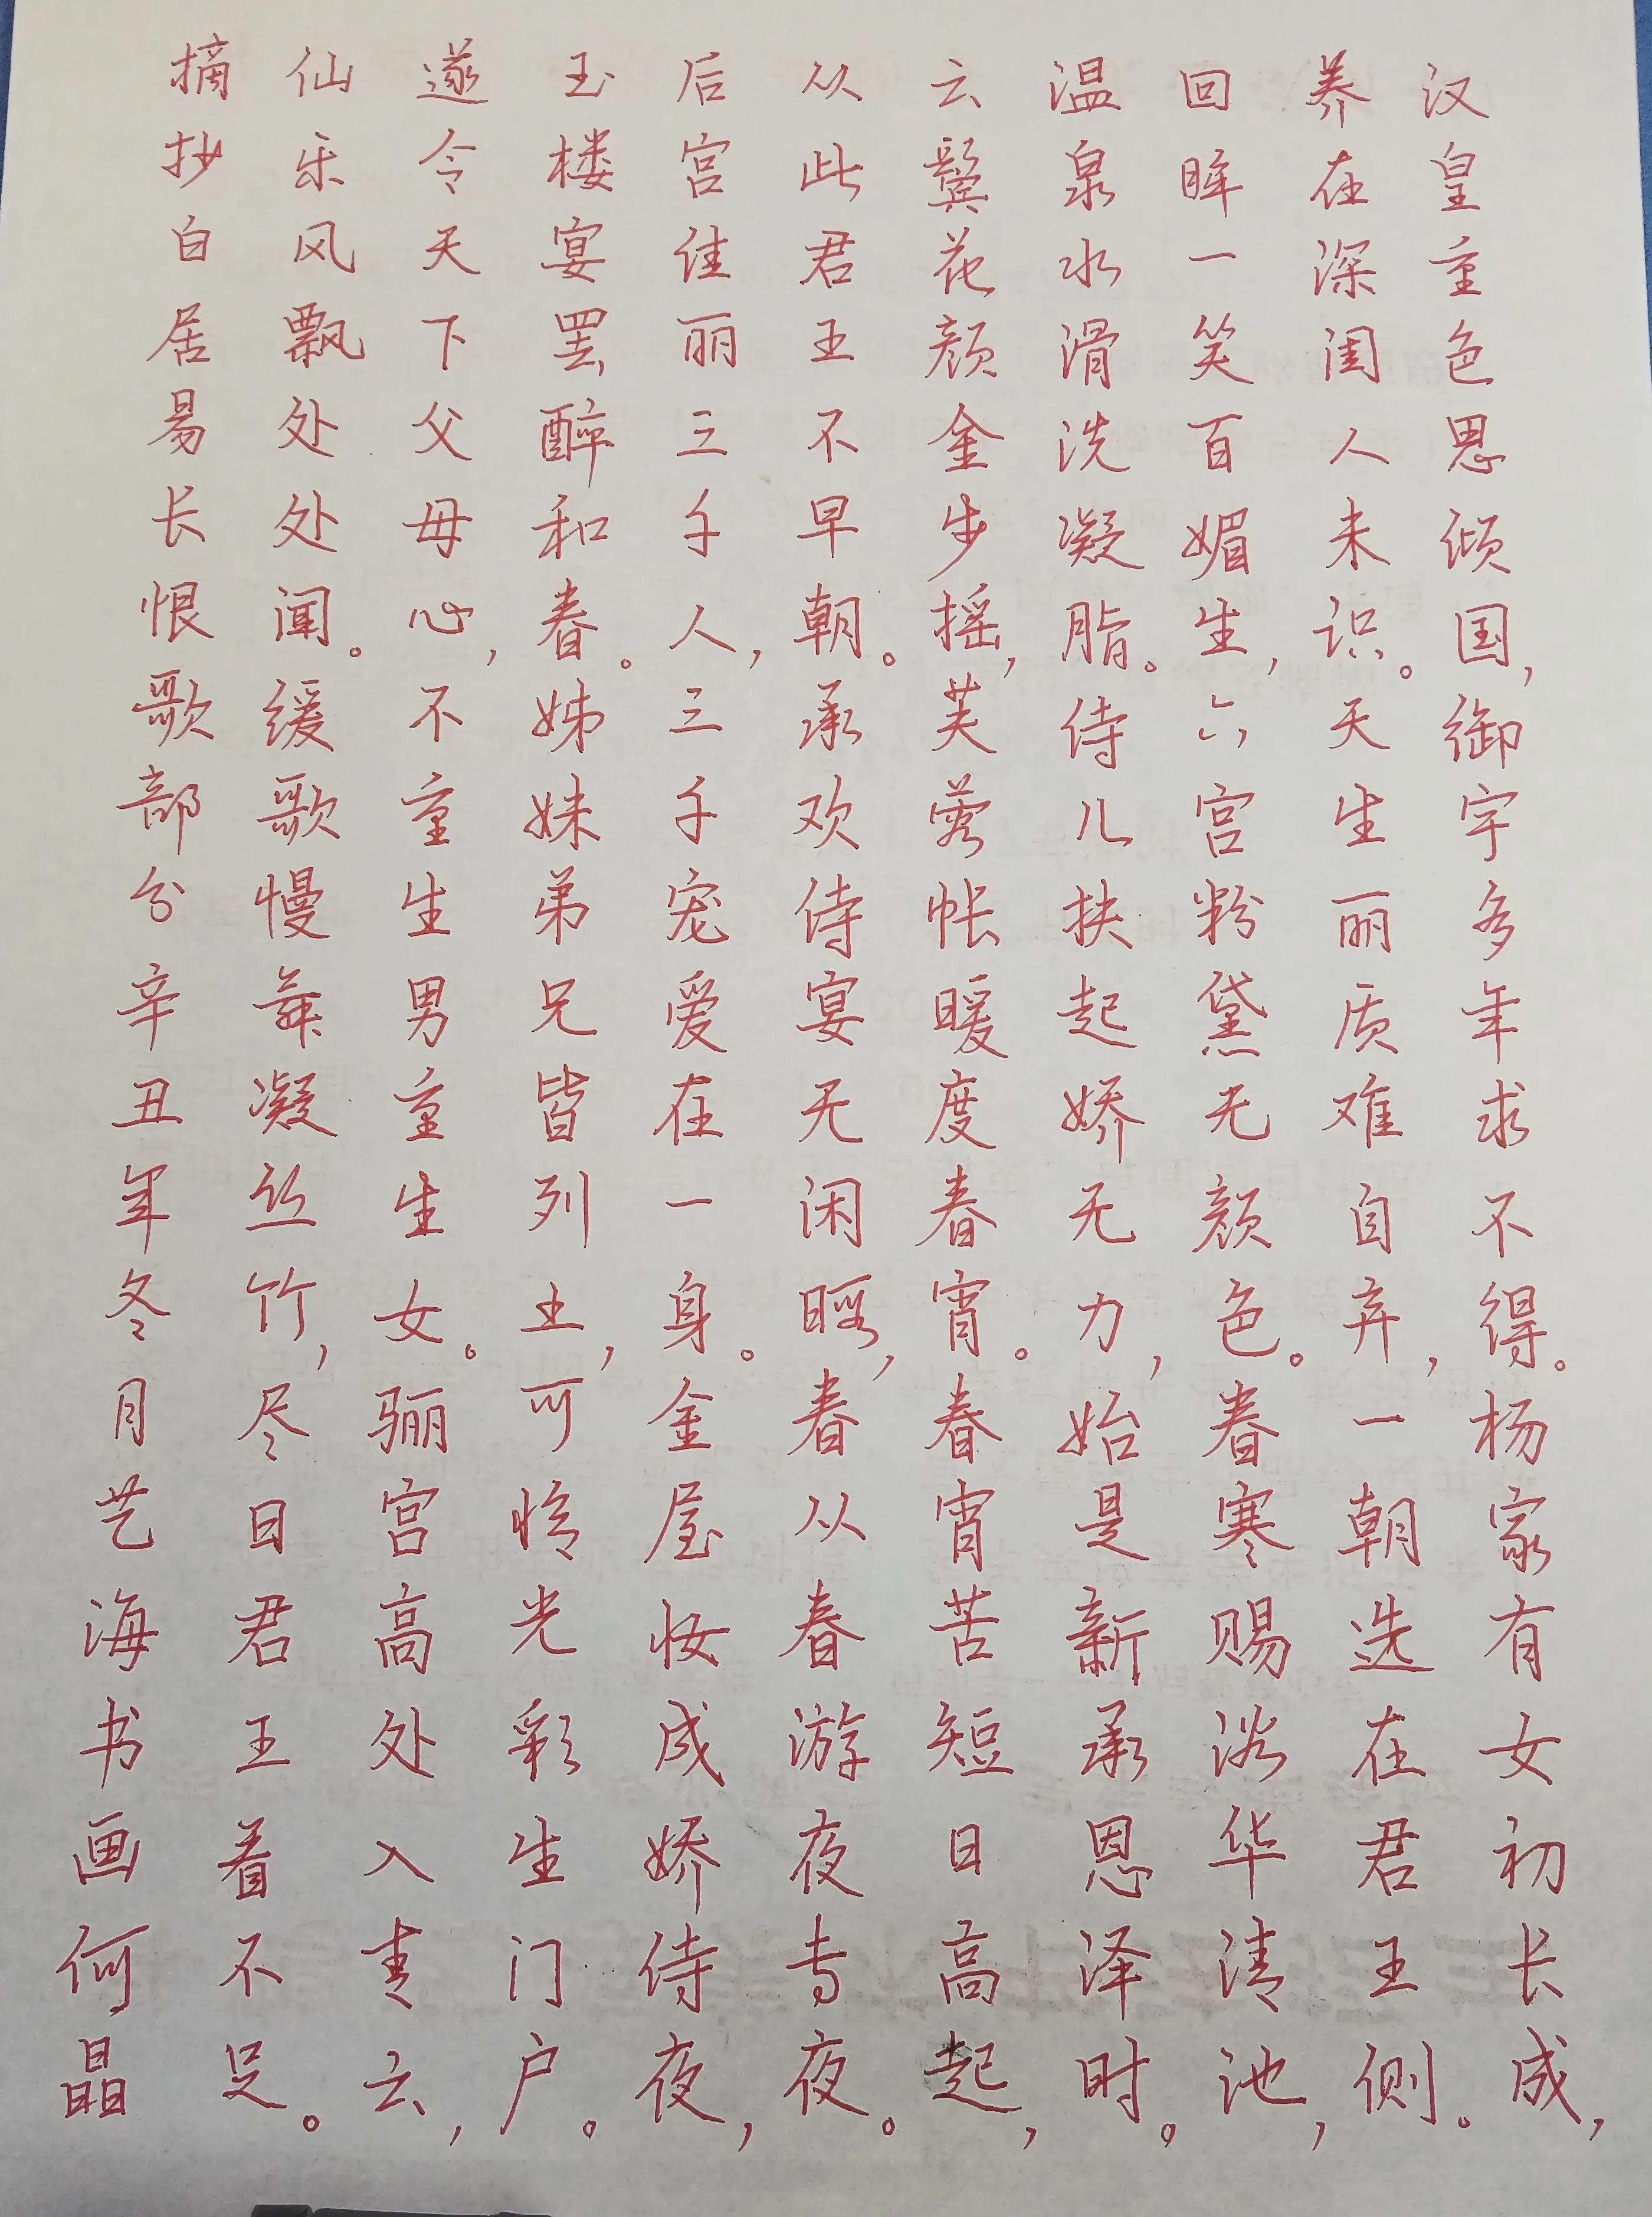 汉皇重色思倾国，御宇多年求不得。杨家有女初长成，
养在深闺人未识。天生丽质难自弃，一朝选在君王侧。
回眸一笑百媚生，六宫粉黛无颜色。春寒赐浴华清池，
温泉水滑洗凝脂。侍儿扶起娇无力，始是新承恩泽时。
云鬓花颜金步摇，芙蓉帐暖度春宵。春宵苦短日高起，
从此君王不早朝。承欢侍宴无闲暇，春从春游夜专夜。
后宫佳丽三千人，三千宠爱在一身。金屋妆成娇侍夜，
玉楼宴罢醉和春。姊妹弟兄皆列土，可怜光彩生门户。
遂令天下父母心，不重生男重生女。骊宫高处入青云，
仙乐风飘处处闻。缓歌慢舞凝丝竹，尽日君王看不足。
摘抄白居易长恨歌部分辛丑年冬月艺海书画何晶